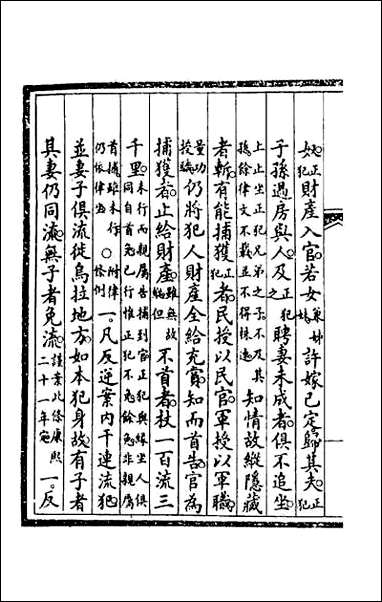 奴正犯財產入官若女兼姊妹許嫁已定歸其夫正犯
子孫過房與人及正犯之聘妻未成者俱不追坐
上止坐正犯兄弟之子不及其孫餘律文不載並不得株連知情故縱隱藏
者斬有能捕獲正犯者民授以民官軍授以軍職
量功授職仍將犯人財產全給充賞知而首告官為
捕獲者止給財產雖無故縱但不首者杖一百流三
千里未行而親屬告捕到官正犯與緣坐人俱同自首免已行惟正犯不免餘免非親屬
首捕雖未行仍依律坐○附律條例一凡反逆案內干連流犯
並妻子俱流徙烏拉地方如本犯身故有子者
其妻仍同流無子者免流謹案此條康熙二十一年定一反